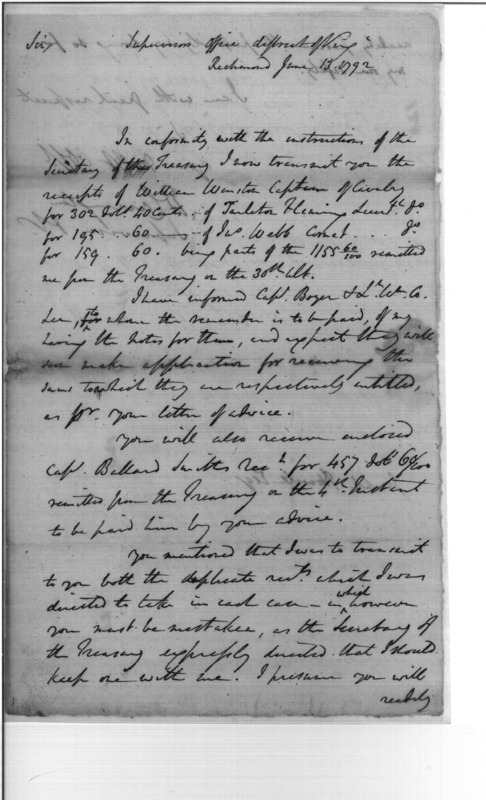 Sir
Supervisors Office district of Virga.
Richmond June 13. 1792
In conformity with the instructions of the
Secretary of the Treasury I now transmit you the
receipts of William Winston Captain of Cavalry
for 302 doll 40 Cents - of Tarleton Fleming Lieut. do
for 195. 60 of Jno. Webb Cornet .... do
for 159. 60. being parts of the 1155 60/100 remitted
me from the Treasury on the 30th Ult.
I have informed Capt. Boyer & Lt. Wm. C.
Lee, to whom the remainder is to be paid, of my
having the notes for them, and expect they will
soon make application for receiving the
sums to which they are respectively entitled,
as pr. your letter of advice.
You will also receive enclosed
Capt. Ballard Smiths rect. for 457 dolls 60/100
remitted from the Treasury on the 4th. Instant
to be paid him by your advice.
You mentioned that I was to transmit
to you both the duplicate rects. which I was
directed to take in each case - in which however
you must be mistaken, as the Secretary of
the Treasury expressly directed that I should
keep one with me. I presume you will
readily